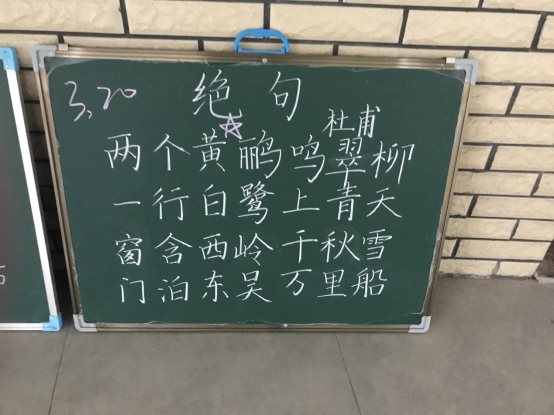 3.20
绝句
杜甫
两个黄鹂鸣翠柳
一行白鹭上青天
窗含西岭千秋雪
门泊东吴万里船